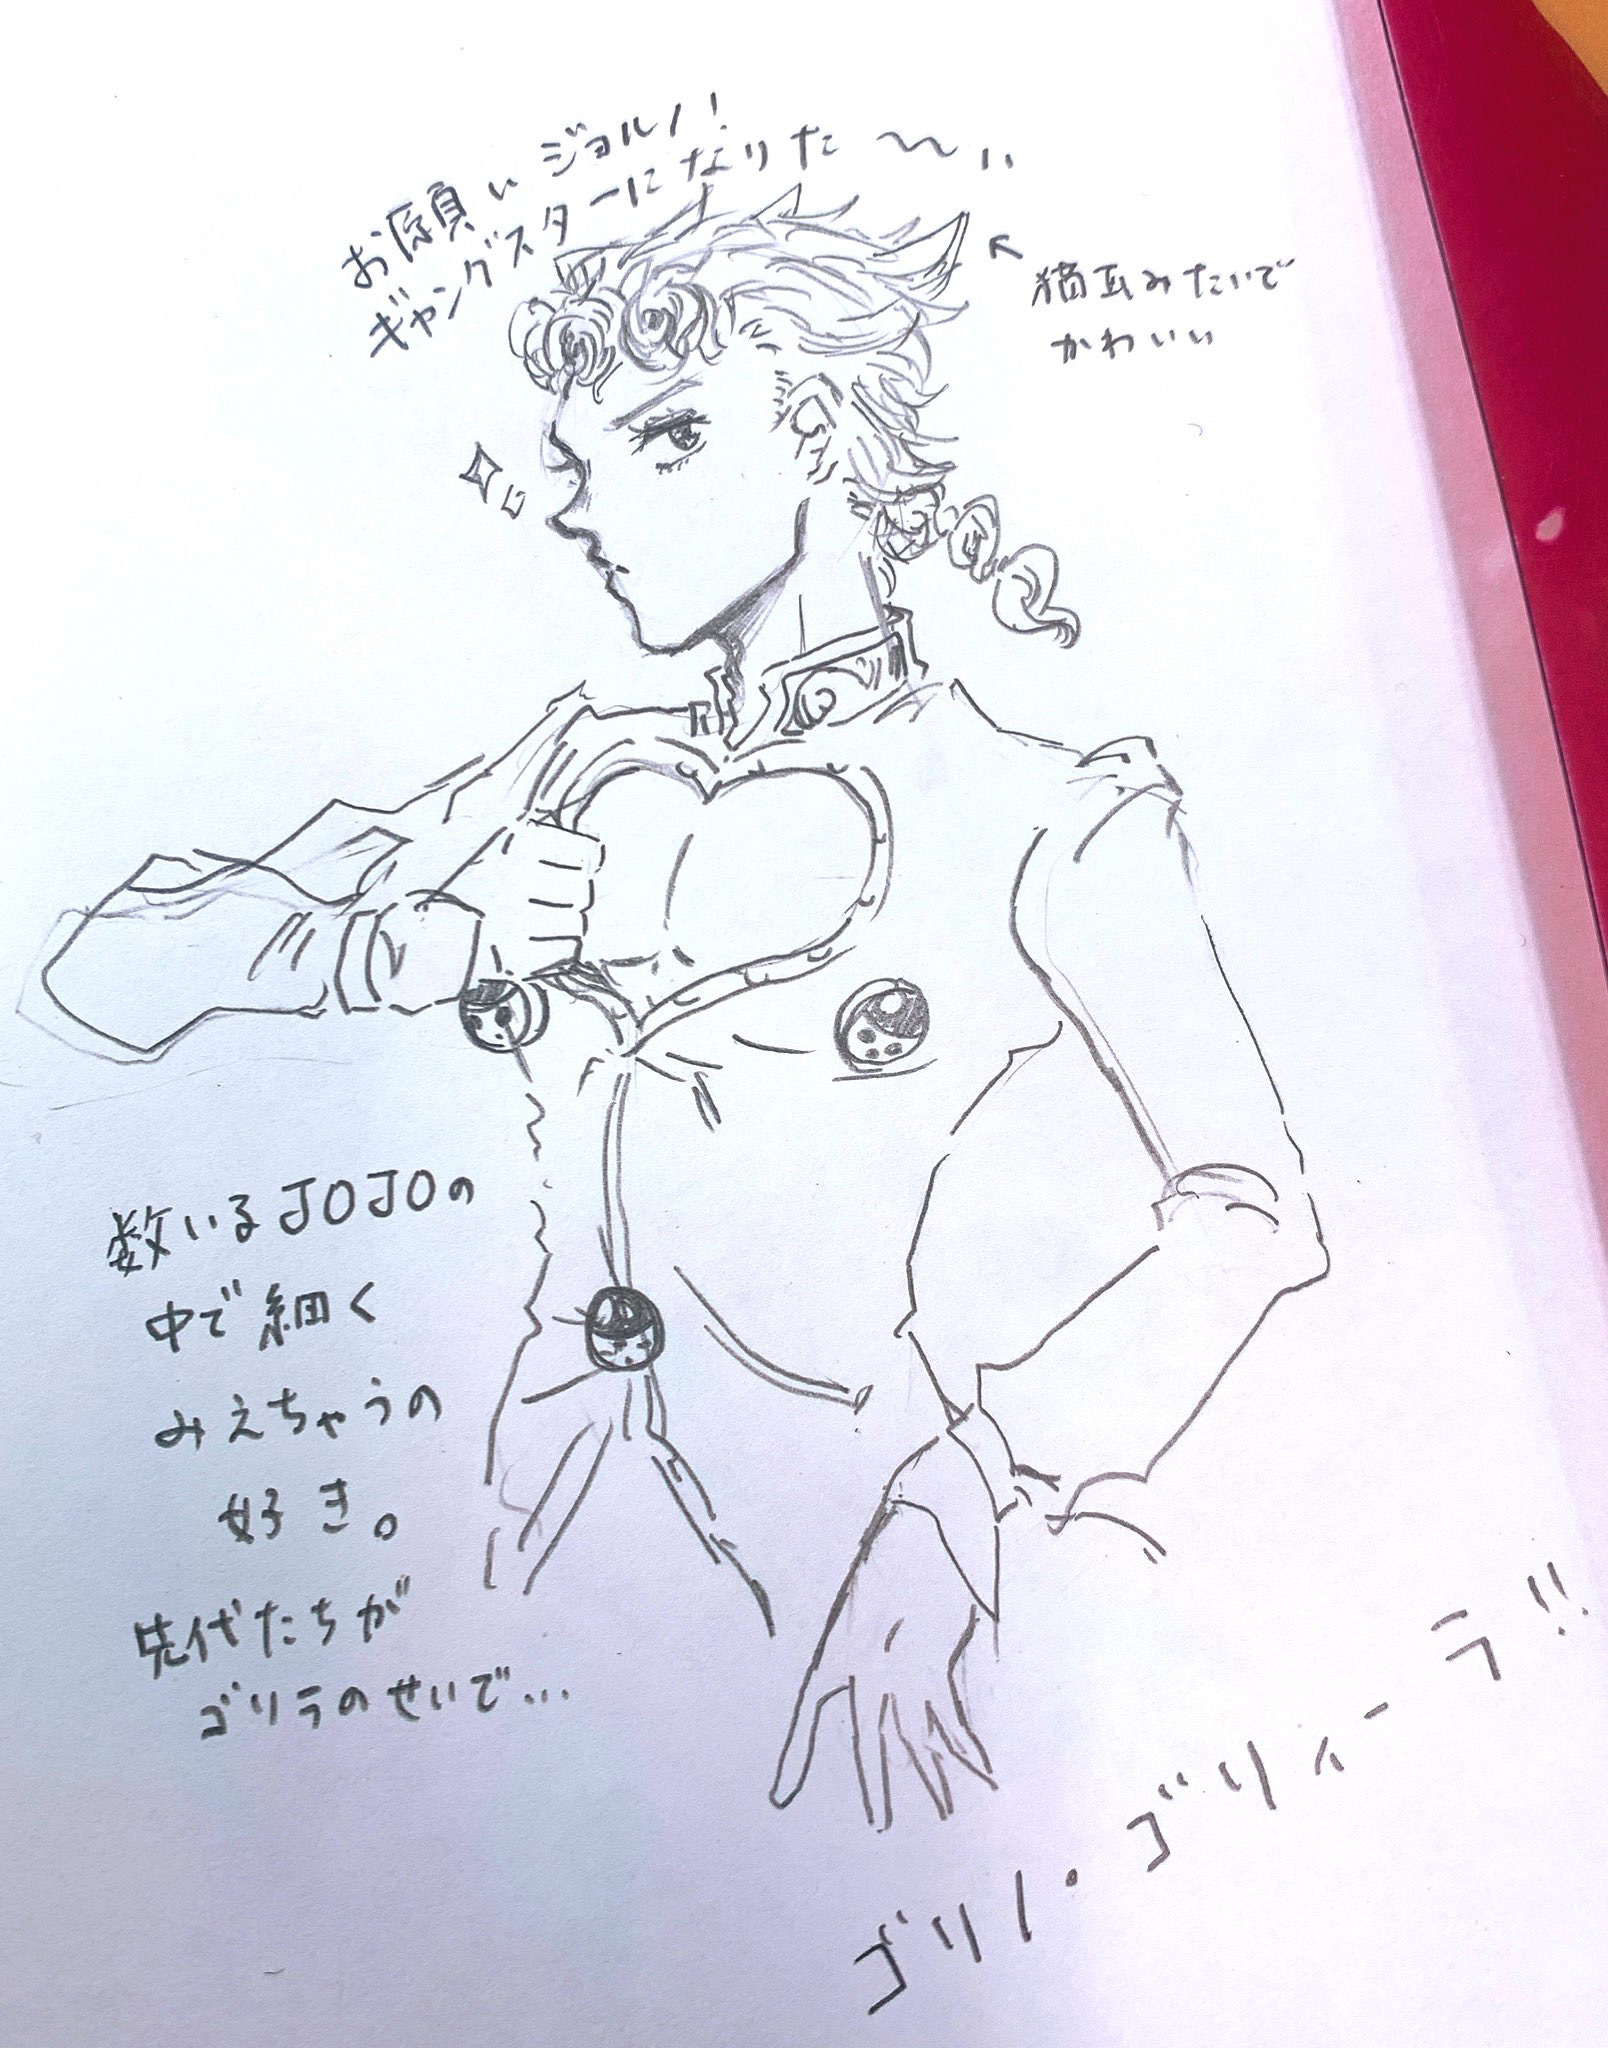 お願いジョルノ!
ギャングスターになりた〜〜い
↖
猫耳みたいで
かわいい
数いるJOJOの
中で細く
みえちゃうの
好き。
先代たちが
ゴリラのせいで...
ゴリノ・ゴリィーラ!!